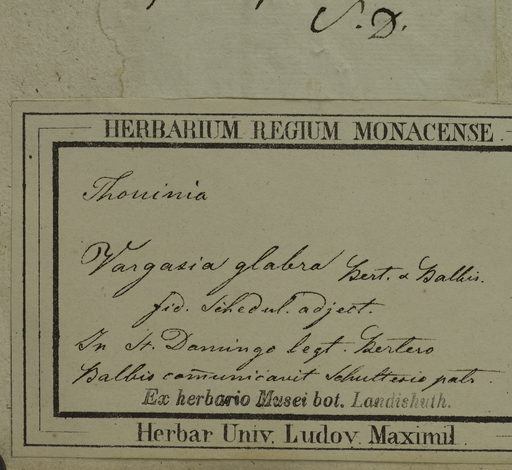 S. D.
HERBARIUM REGIUM MONACENSE.
Thouinia
Vargasia glabra Bert. & Balbis.
fid. Schedul. adject.
In St. Domingo legt. Bertero
Balbis com̄unicavit Schultesio patr.
Ex herbario Musei bot. Landishuth.
Herbar Univ. Ludov. Maximil.